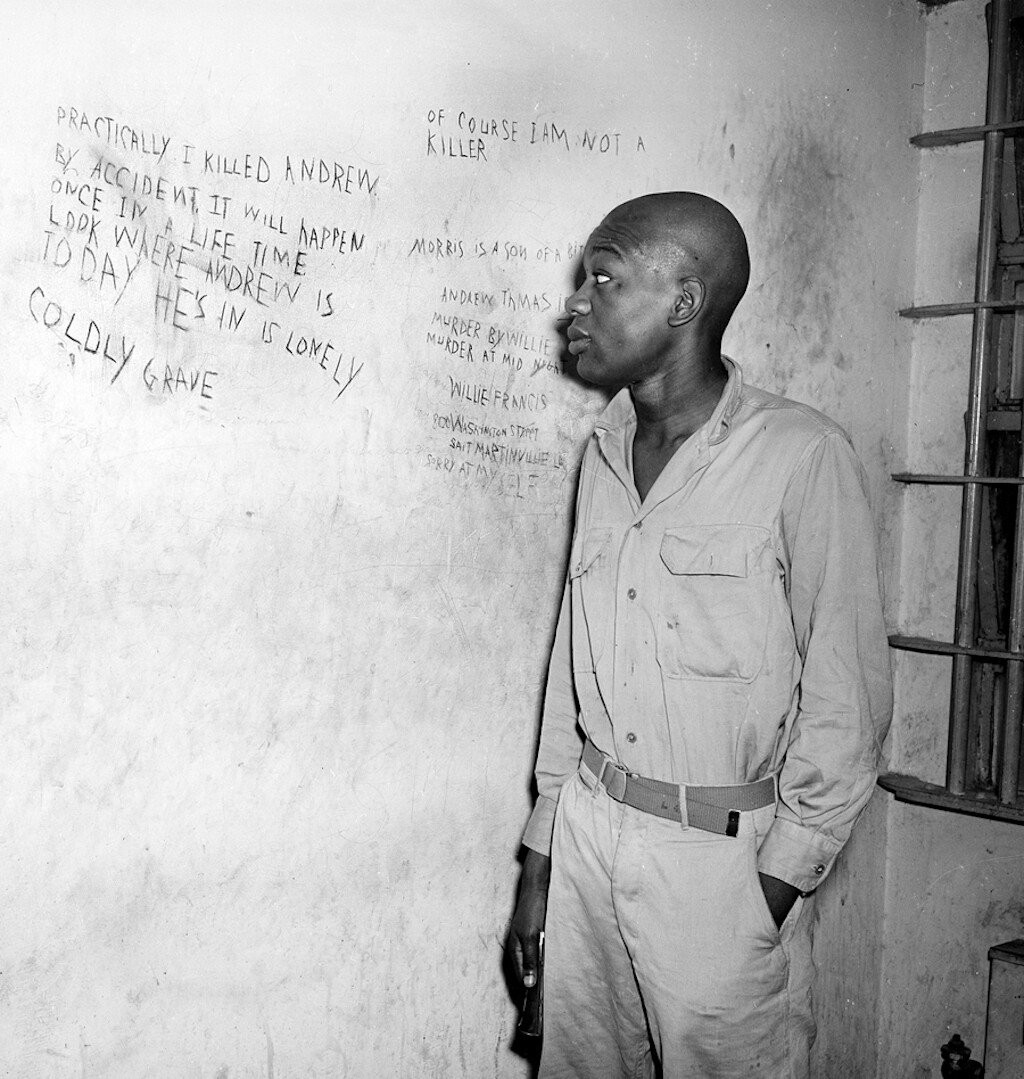 PRACTICALLY I KILLED ANDREW
BY ACCIDENT. IT WILL HAPPEN
ONCE IN A LIFE TIME
LOOK WHERE ANDREW IS
TODAY HE'S IN IS LONELY
COLDLY GRAVE
OF COURSE I AM NOT A
KILLER
MORRIS IS A SON OF A
ANDREW THMAS
MURDER BY WILLIE
MURDER AT MID NIGHT
WILLIE FRANCIS
800 WASHINGTON
SAIT MARTINVILLE
SORRY AT MY SELF